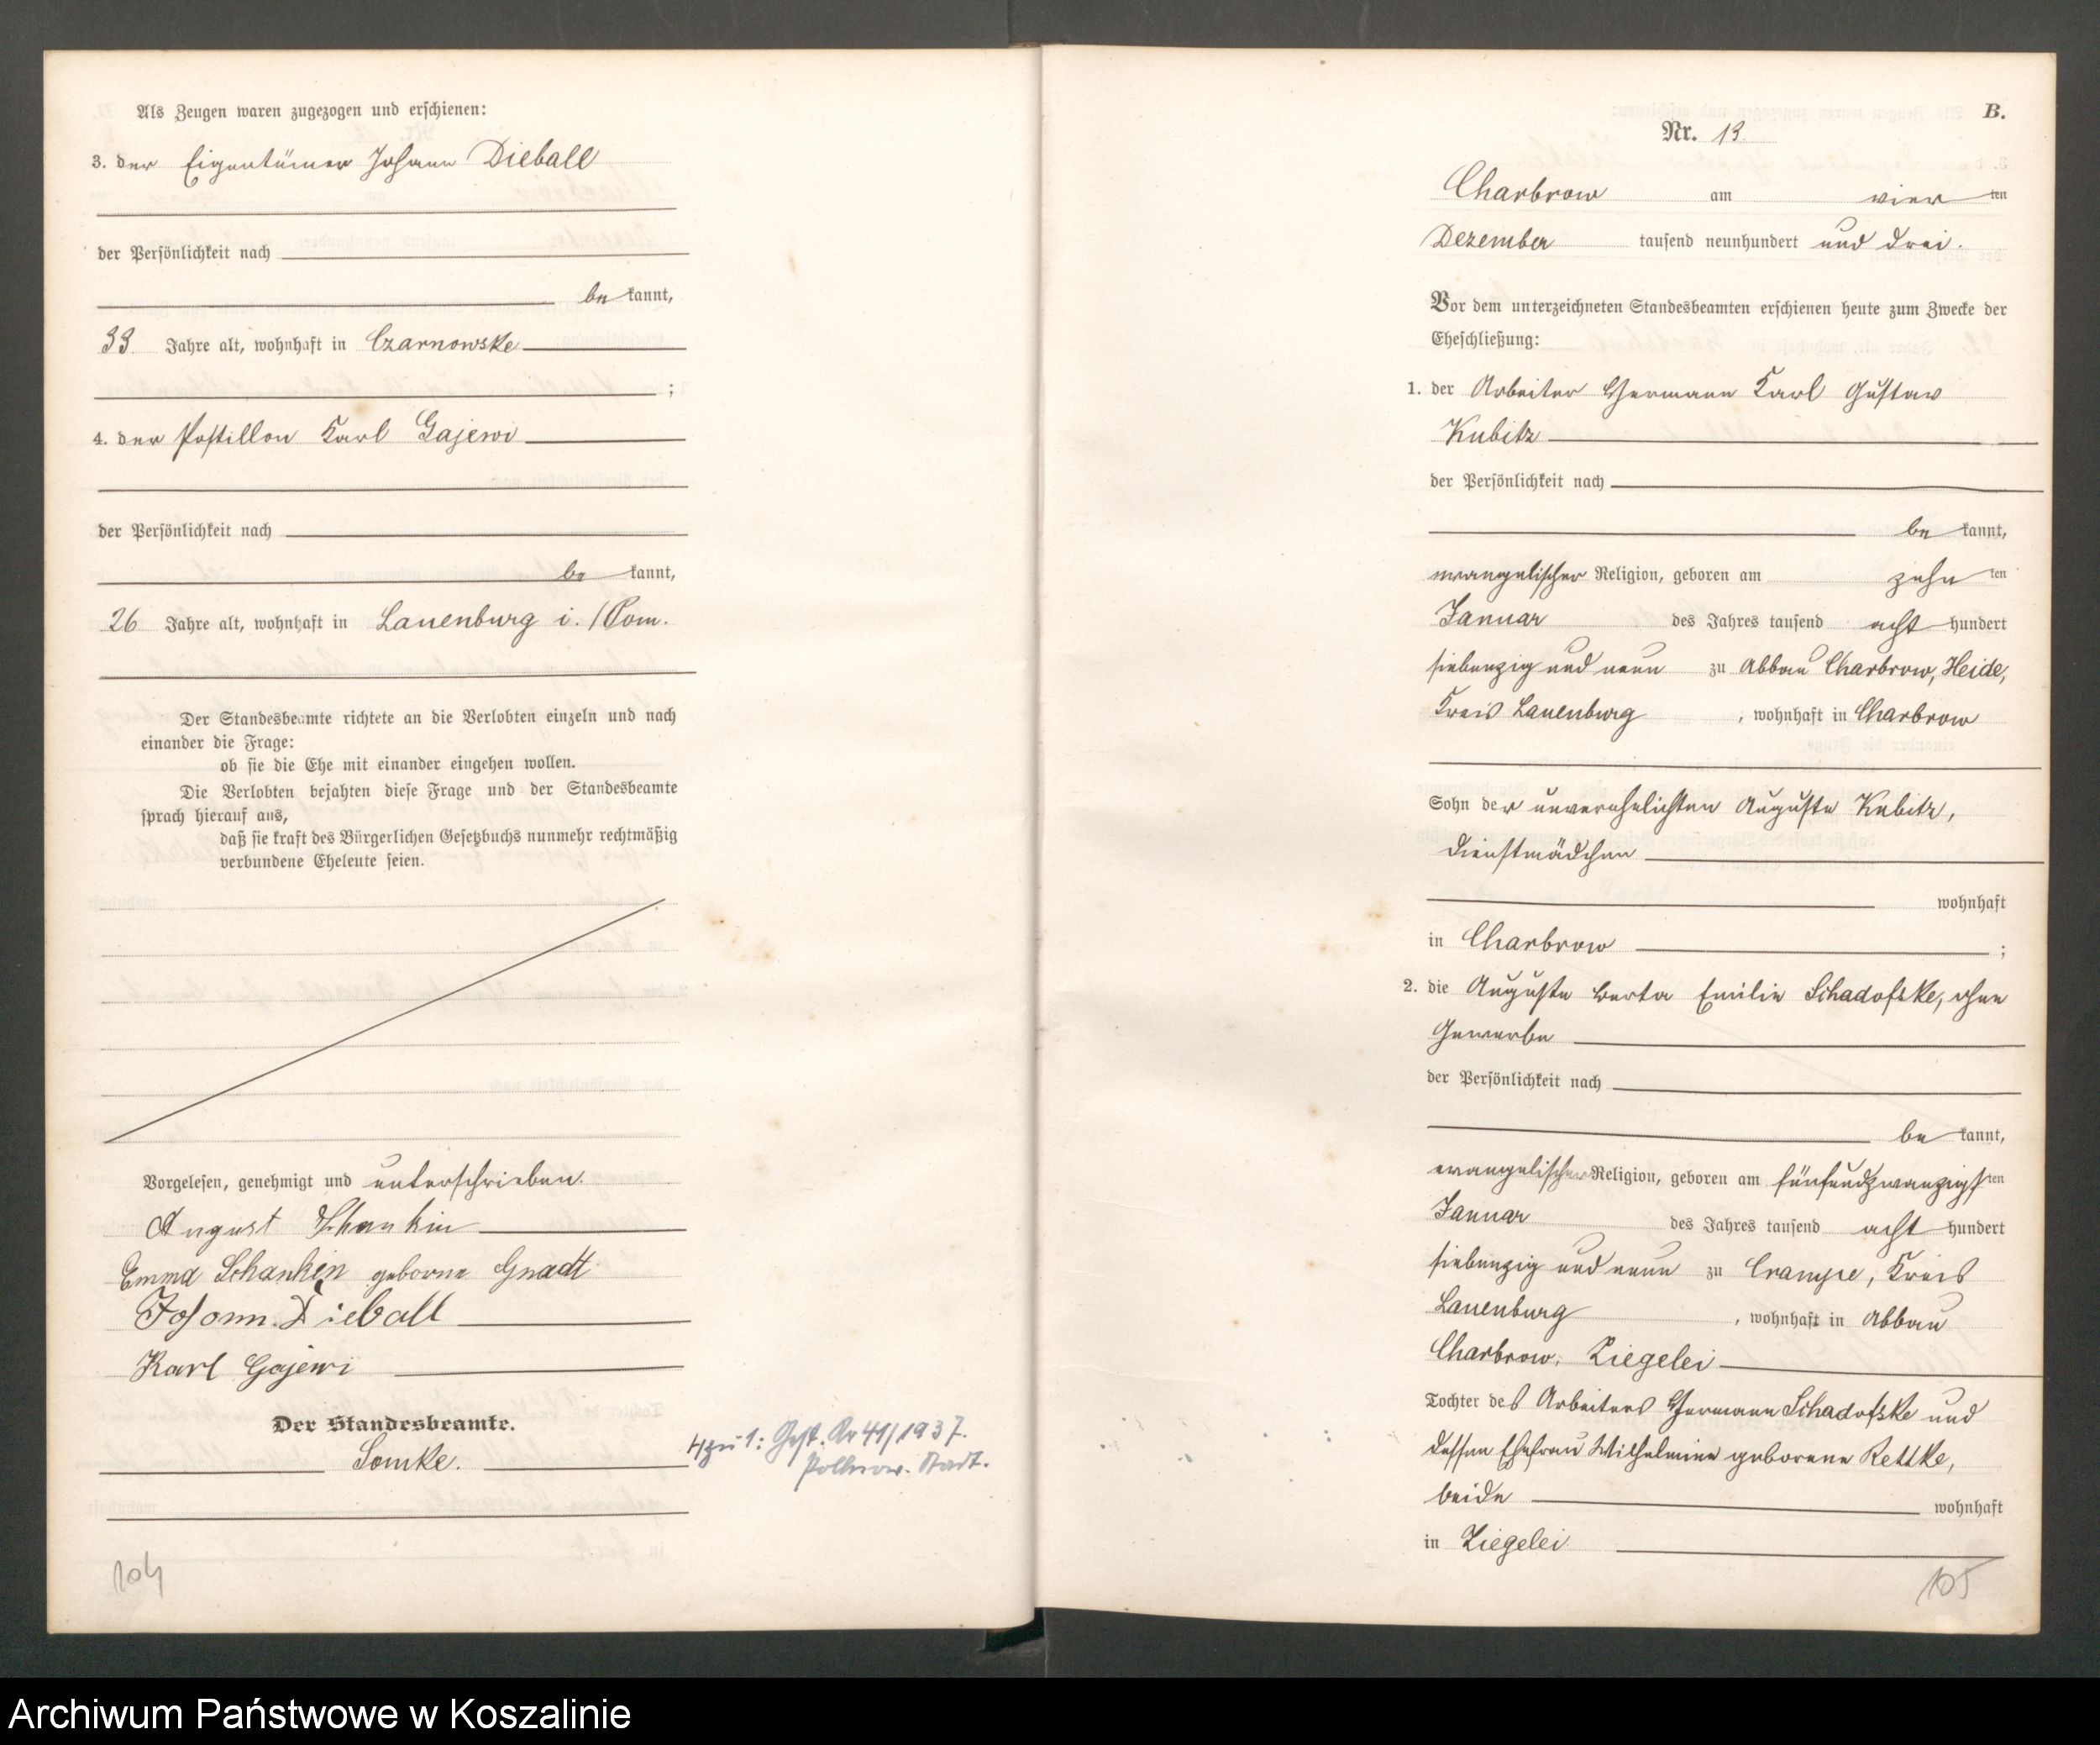 Als Zeugen waren zugezogen und erschienen:
3. der Eigentümer Johann Dieball
der Persönlichkeit nach
be kannt,
33 Jahre alt, wohnhaft in Czarnowske
;
4. der Postillon Karl Gajewi
der Persönlichkeit nach
be kannt,
26 Jahre alt, wohnhaft in Lauenburg i./Pom.
Der Standesbeamte richtete an die Verlobten einzeln und nach
einander die Frage:
ob sie die Ehe mit einander eingehen wollen.
Die Verlobten bejahten diese Frage und der Standesbeamte
sprach hierauf aus,
daß sie kraft des Bürgerlichen Gesetzbuchs nunmehr rechtmäßig
verbundene Eheleute seien.
Vorgelesen, genehmigt und unterschrieben.
August Schankin
Emma Schankin geborne Gnadt
Johann Dieball
Karl Gajewi
Der Standesbeamte.
Somke.
zu 1: Gest. Nr 41/1937.
Pollnow. Stadt.
104
B.
Nr. 13
Charbrow am vier ten
Dezember tausend neunhundert und drei.
Vor dem unterzeichneten Standesbeamten erschienen heute zum Zwecke der
Eheschließung:
1. der Arbeiter Hermann Karl Gustav
Kubitz
der Persönlichkeit nach
be kannt,
evangelischer Religion, geboren am zehn ten
Januar des Jahres tausend acht hundert
siebenzig und neun zu Abbau Charbrow, Heide,
Kreis Lauenburg, wohnhaft in Charbrow
Sohn der unverehelichten Auguste Kubitz,
Dienstmädchen
wohnhaft
in Charbrow ;
2. die Auguste Berta Emilie Schadofske, ohne
Gewerbe
der Persönlichkeit nach
be kannt,
evangelischer Religion, geboren am fünfundzwanzigsten
Januar des Jahres tausend acht hundert
siebenzig und neun zu Crampe, Kreis
Lauenburg, wohnhaft in Abbau
Charbrow, Ziegelei
Tochter des Arbeiters Hermann Schadofske und
dessen Ehefrau Wilhelmine geborene Rettke,
beide wohnhaft
in Ziegelei
105
Archiwum Państwowe w Koszalinie